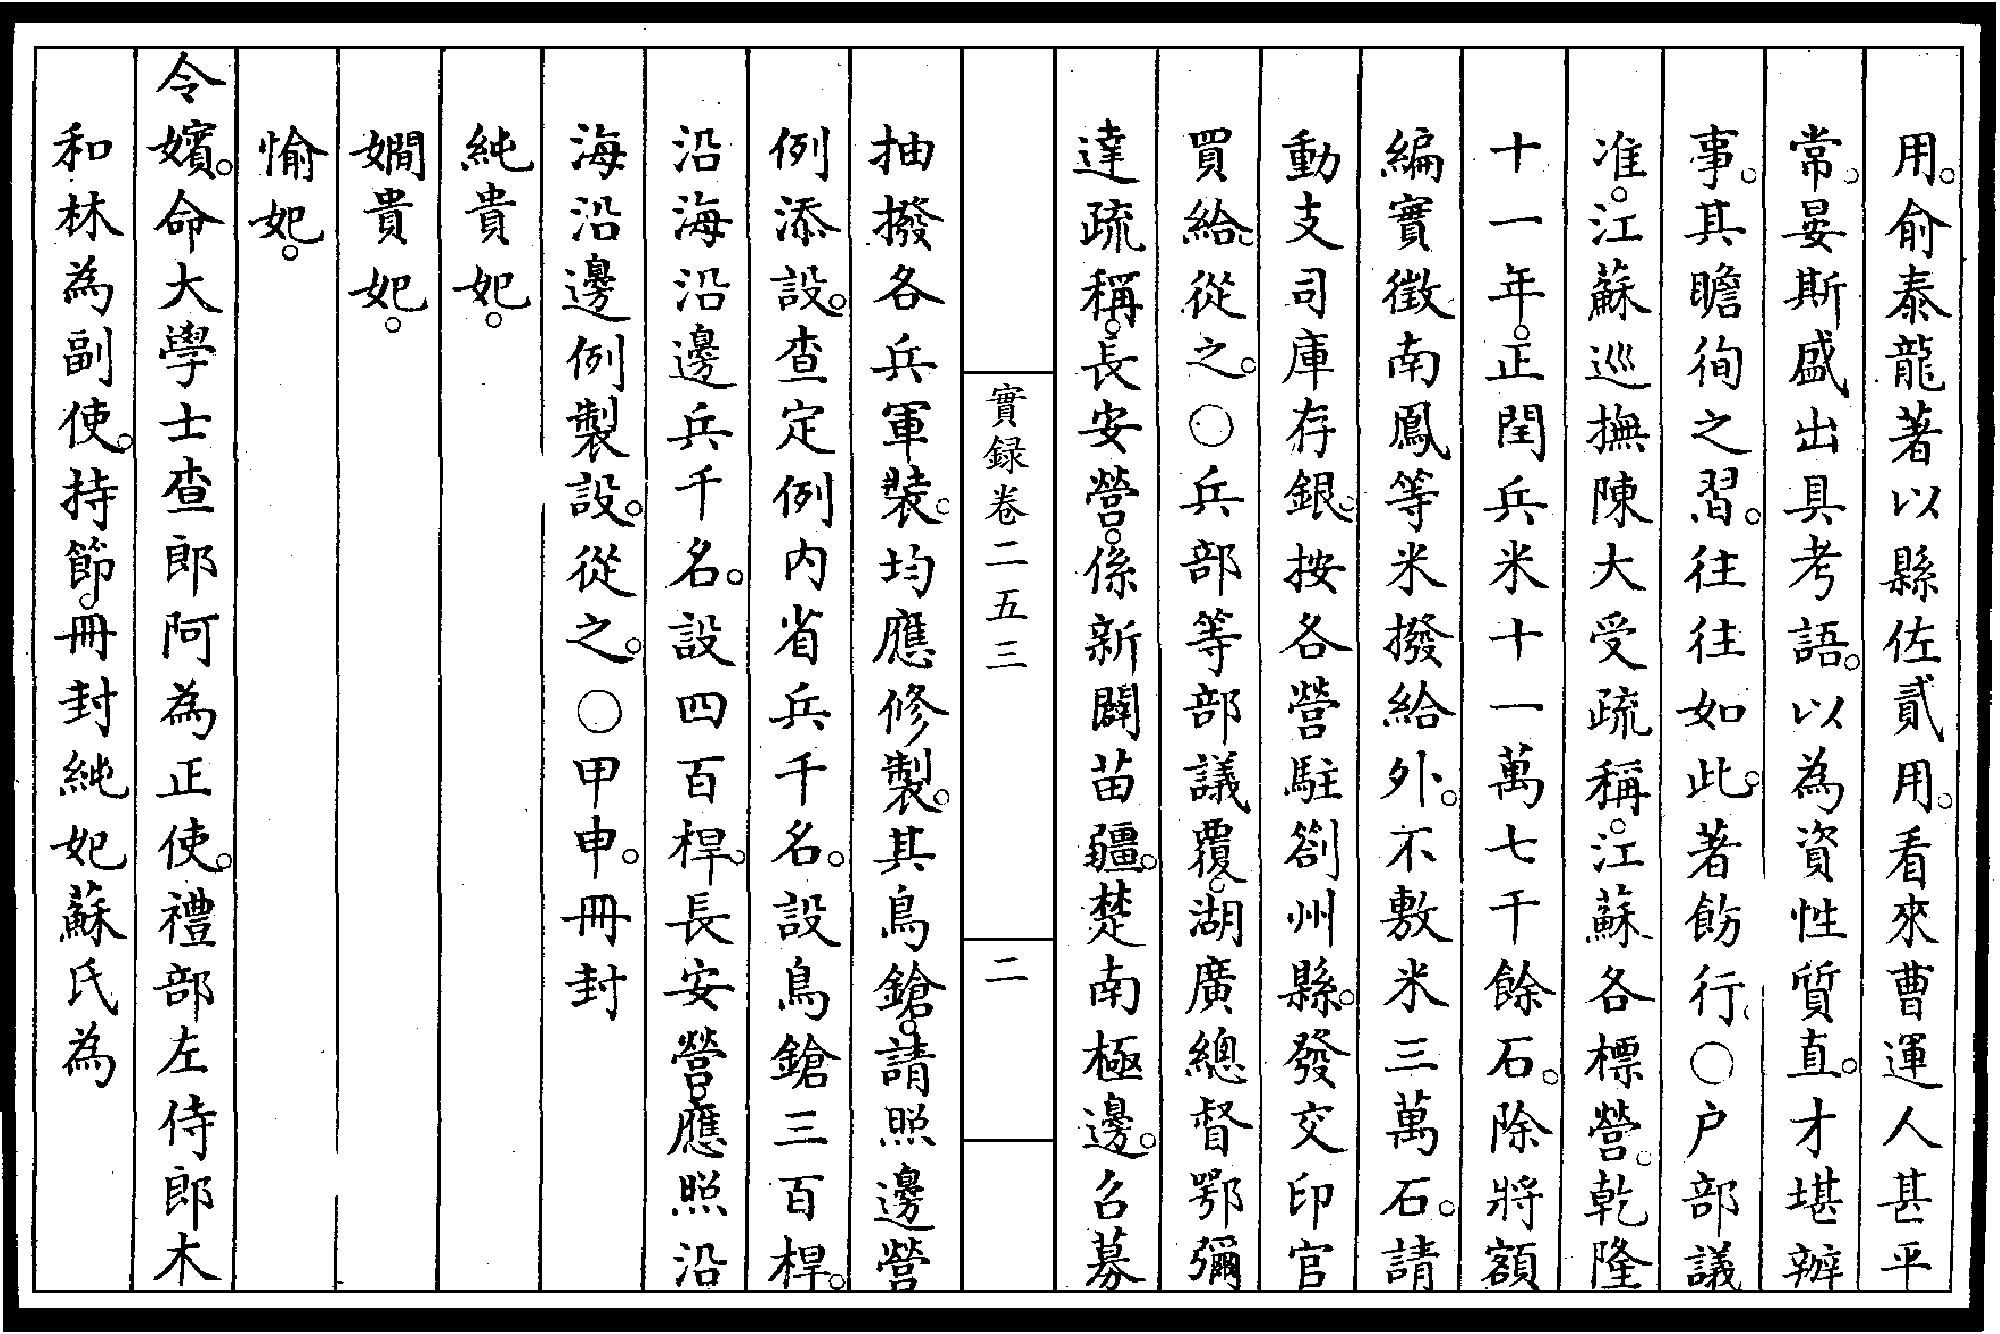 用。俞泰龍著以縣佐貳用。看來曹運人甚平
常。晏斯盛出具考語。以為資性質直。才堪辦
事。其瞻徇之習。往往如此。著飭行。○户部議
准。江蘇巡撫陳大受疏稱。江蘇各標營。乾隆
十一年。正閏兵米十一萬七千餘石。除將額
編實徵南鳳等米撥給外。不敷米三萬石。請
動支司庫存銀。按各營駐劄州縣。發交印官
買給。從之。○兵部等部議覆。湖廣總督鄂彌
達疏稱。長安營。係新闢苗疆。楚南極邊。召募
實録卷二五三 二
抽撥各兵軍裝。均應修製。其鳥鎗。請照邊營
例添設。查定例内省兵千名。設鳥鎗三百桿。
沿海沿邊兵千名。設四百桿。長安營。應照沿
海沿邊例製設。從之。○甲申。冊封
純貴妃。
嫺貴妃。
愉妃。
令嬪。命大學士查郎阿為正使。禮部左侍郎木
和林為副使。持節。冊封純妃蘇氏為